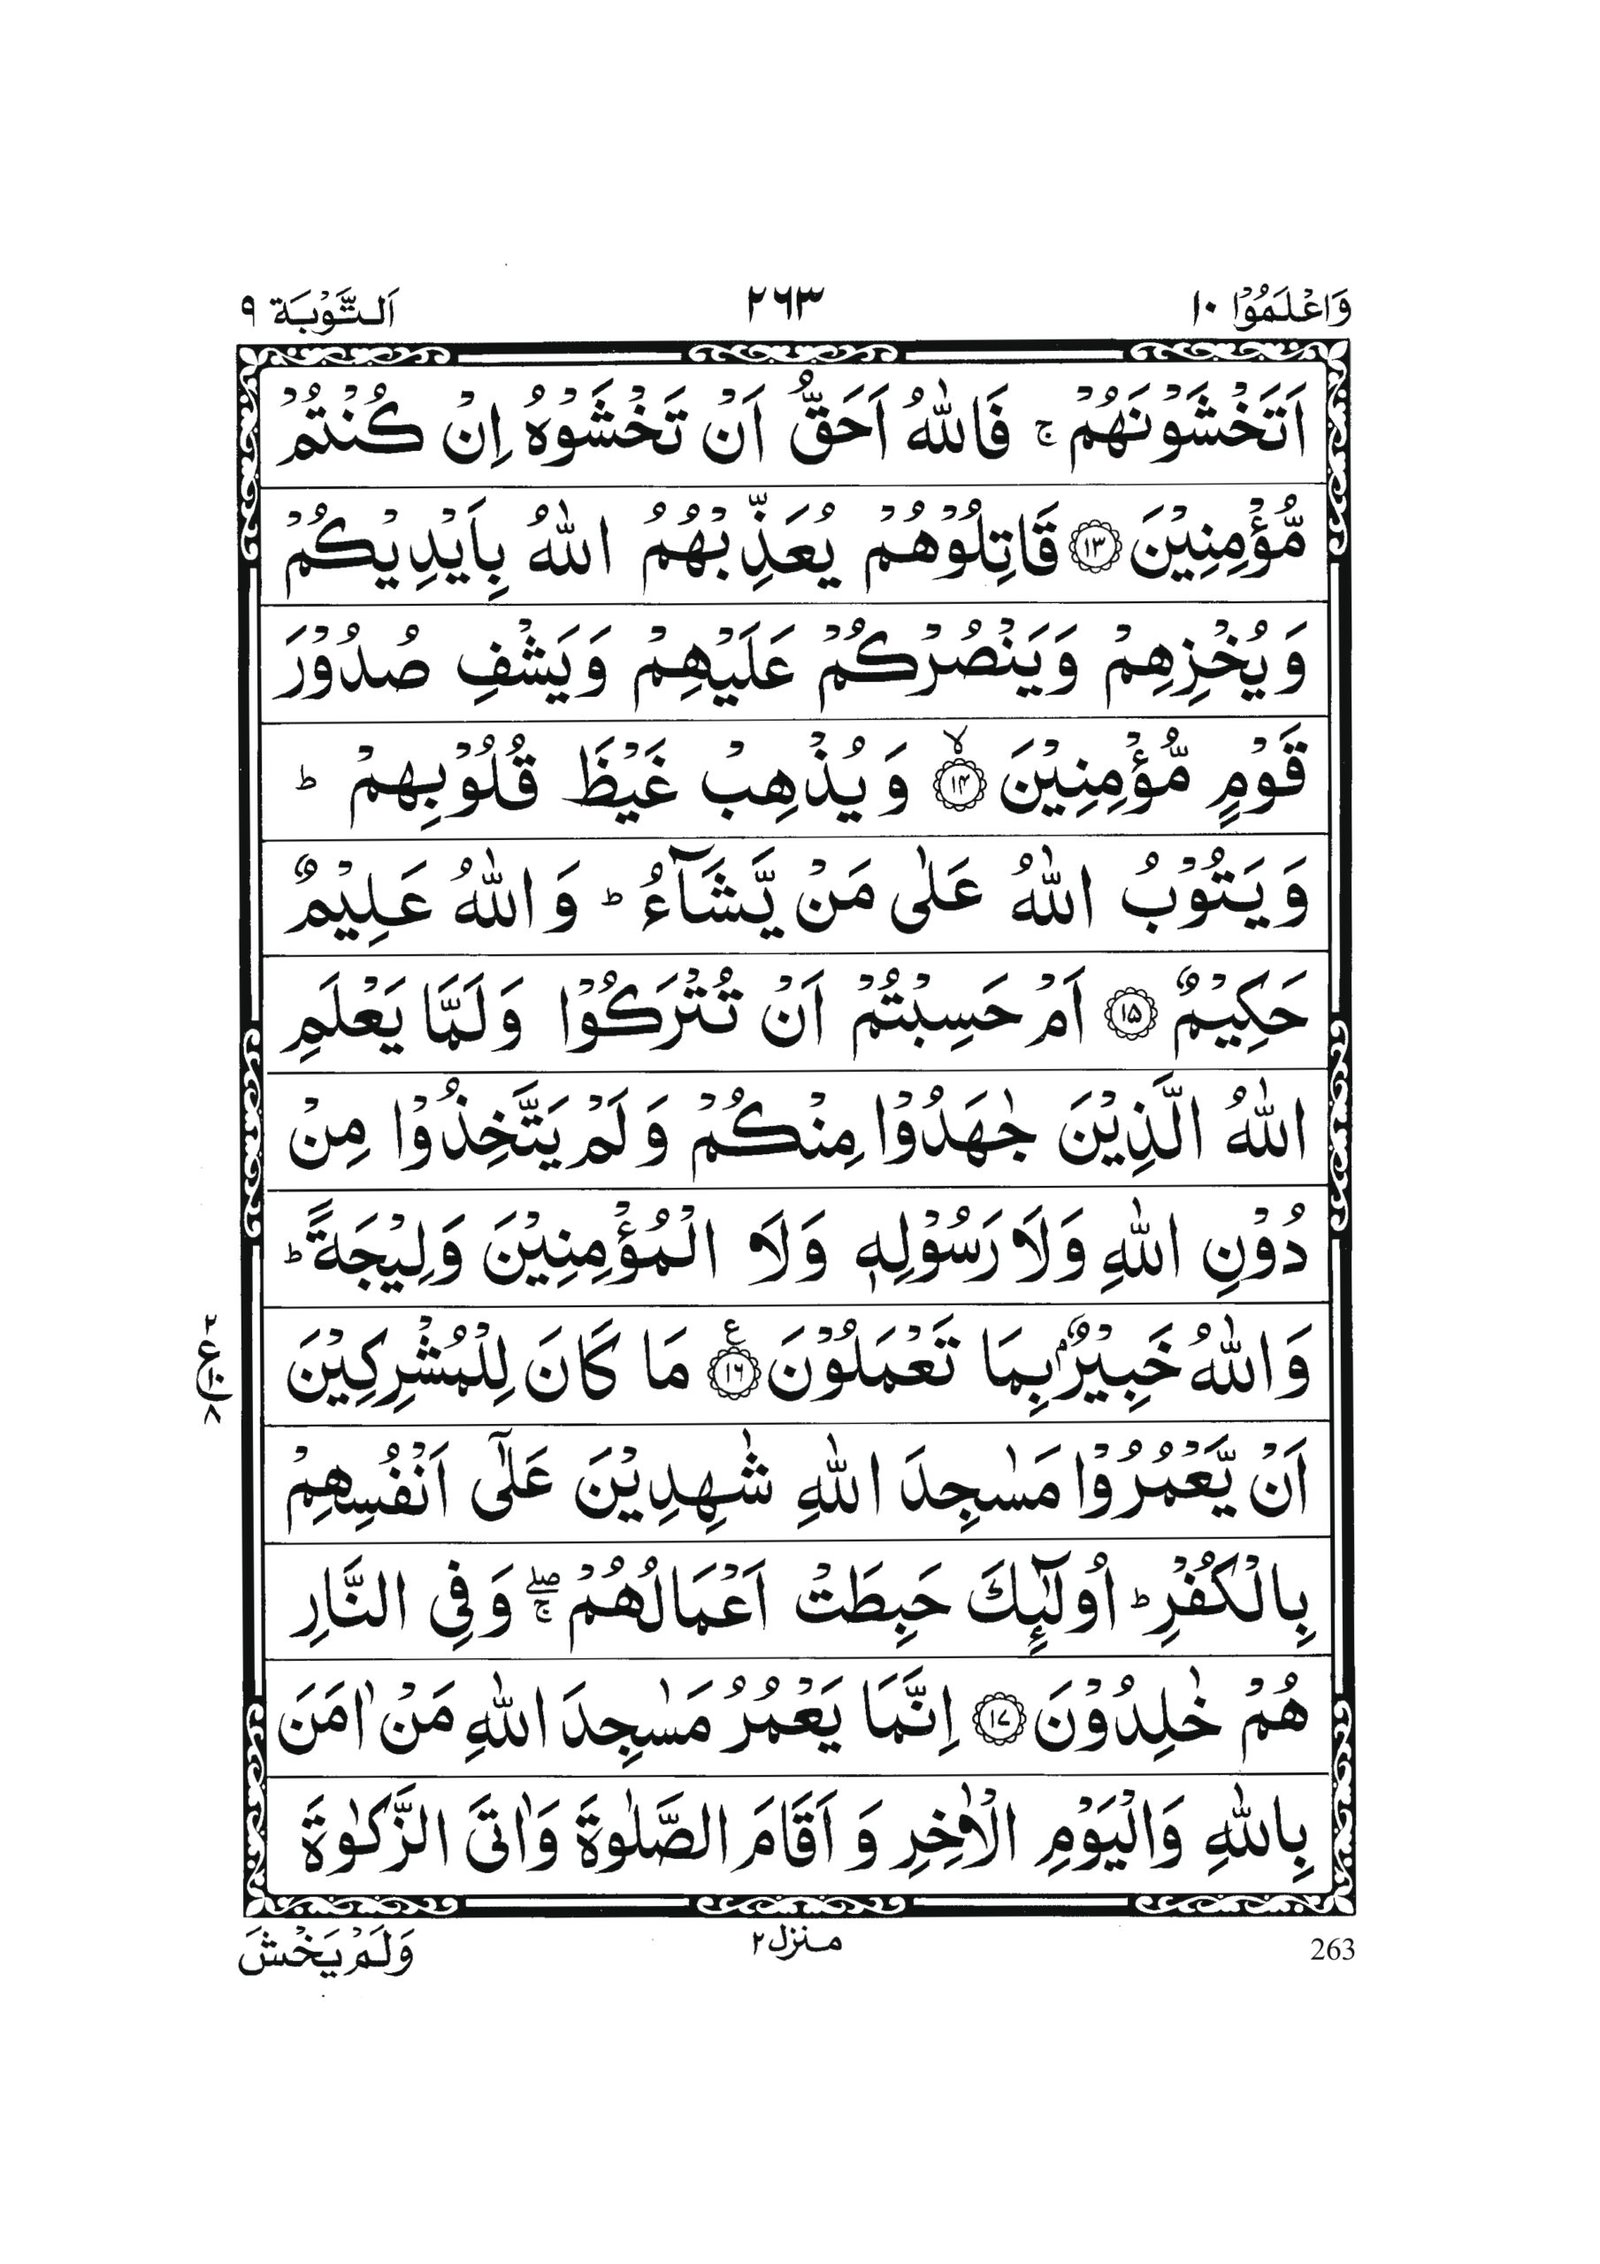 وَاعْلَمُوْٓا ١٠ ٢٦٣ اَلتَّوْبَة ٩
اَتَخْشَوْنَهُمْ ۚ فَاللّٰهُ اَحَقُّ اَنْ تَخْشَوْهُ اِنْ كُنْتُمْ
مُّؤْمِنِيْنَ ﴿۱۳﴾ قَاتِلُوْهُمْ يُعَذِّبْهُمُ اللّٰهُ بِاَيْدِيْكُمْ
وَيُخْزِهِمْ وَيَنْصُرْكُمْ عَلَيْهِمْ وَيَشْفِ صُدُوْرَ
قَوْمٍ مُّؤْمِنِيْنَ ﴿۱۴﴾ ۙ وَيُذْهِبْ غَيْظَ قُلُوْبِهِمْ ؕ
وَيَتُوْبُ اللّٰهُ عَلٰى مَنْ يَّشَآءُ ؕ وَاللّٰهُ عَلِيْمٌ
حَكِيْمٌ ﴿۱۵﴾ اَمْ حَسِبْتُمْ اَنْ تُتْرَكُوْا وَلَمَّا يَعْلَمِ
اللّٰهُ الَّذِيْنَ جٰهَدُوْا مِنْكُمْ وَلَمْ يَتَّخِذُوْا مِنْ
دُوْنِ اللّٰهِ وَلَا رَسُوْلِهٖ وَلَا الْمُؤْمِنِيْنَ وَلِيْجَةً ؕ
وَاللّٰهُ خَبِيْرٌۢ بِمَا تَعْمَلُوْنَ ﴿۱۶﴾ ع مَا كَانَ لِلْمُشْرِكِيْنَ
٢ ع ١٠ ٨
اَنْ يَّعْمُرُوْا مَسٰجِدَ اللّٰهِ شٰهِدِيْنَ عَلٰٓى اَنْفُسِهِمْ
بِالْكُفْرِ ؕ اُولٰٓئِكَ حَبِطَتْ اَعْمَالُهُمْ ۖۚ وَفِى النَّارِ
هُمْ خٰلِدُوْنَ ﴿۱۷﴾ اِنَّمَا يَعْمُرُ مَسٰجِدَ اللّٰهِ مَنْ اٰمَنَ
بِاللّٰهِ وَالْيَوْمِ الْاٰخِرِ وَاَقَامَ الصَّلٰوةَ وَاٰتَى الزَّكٰوةَ
263 منزل ٢ وَلَمْ يَخْشَ